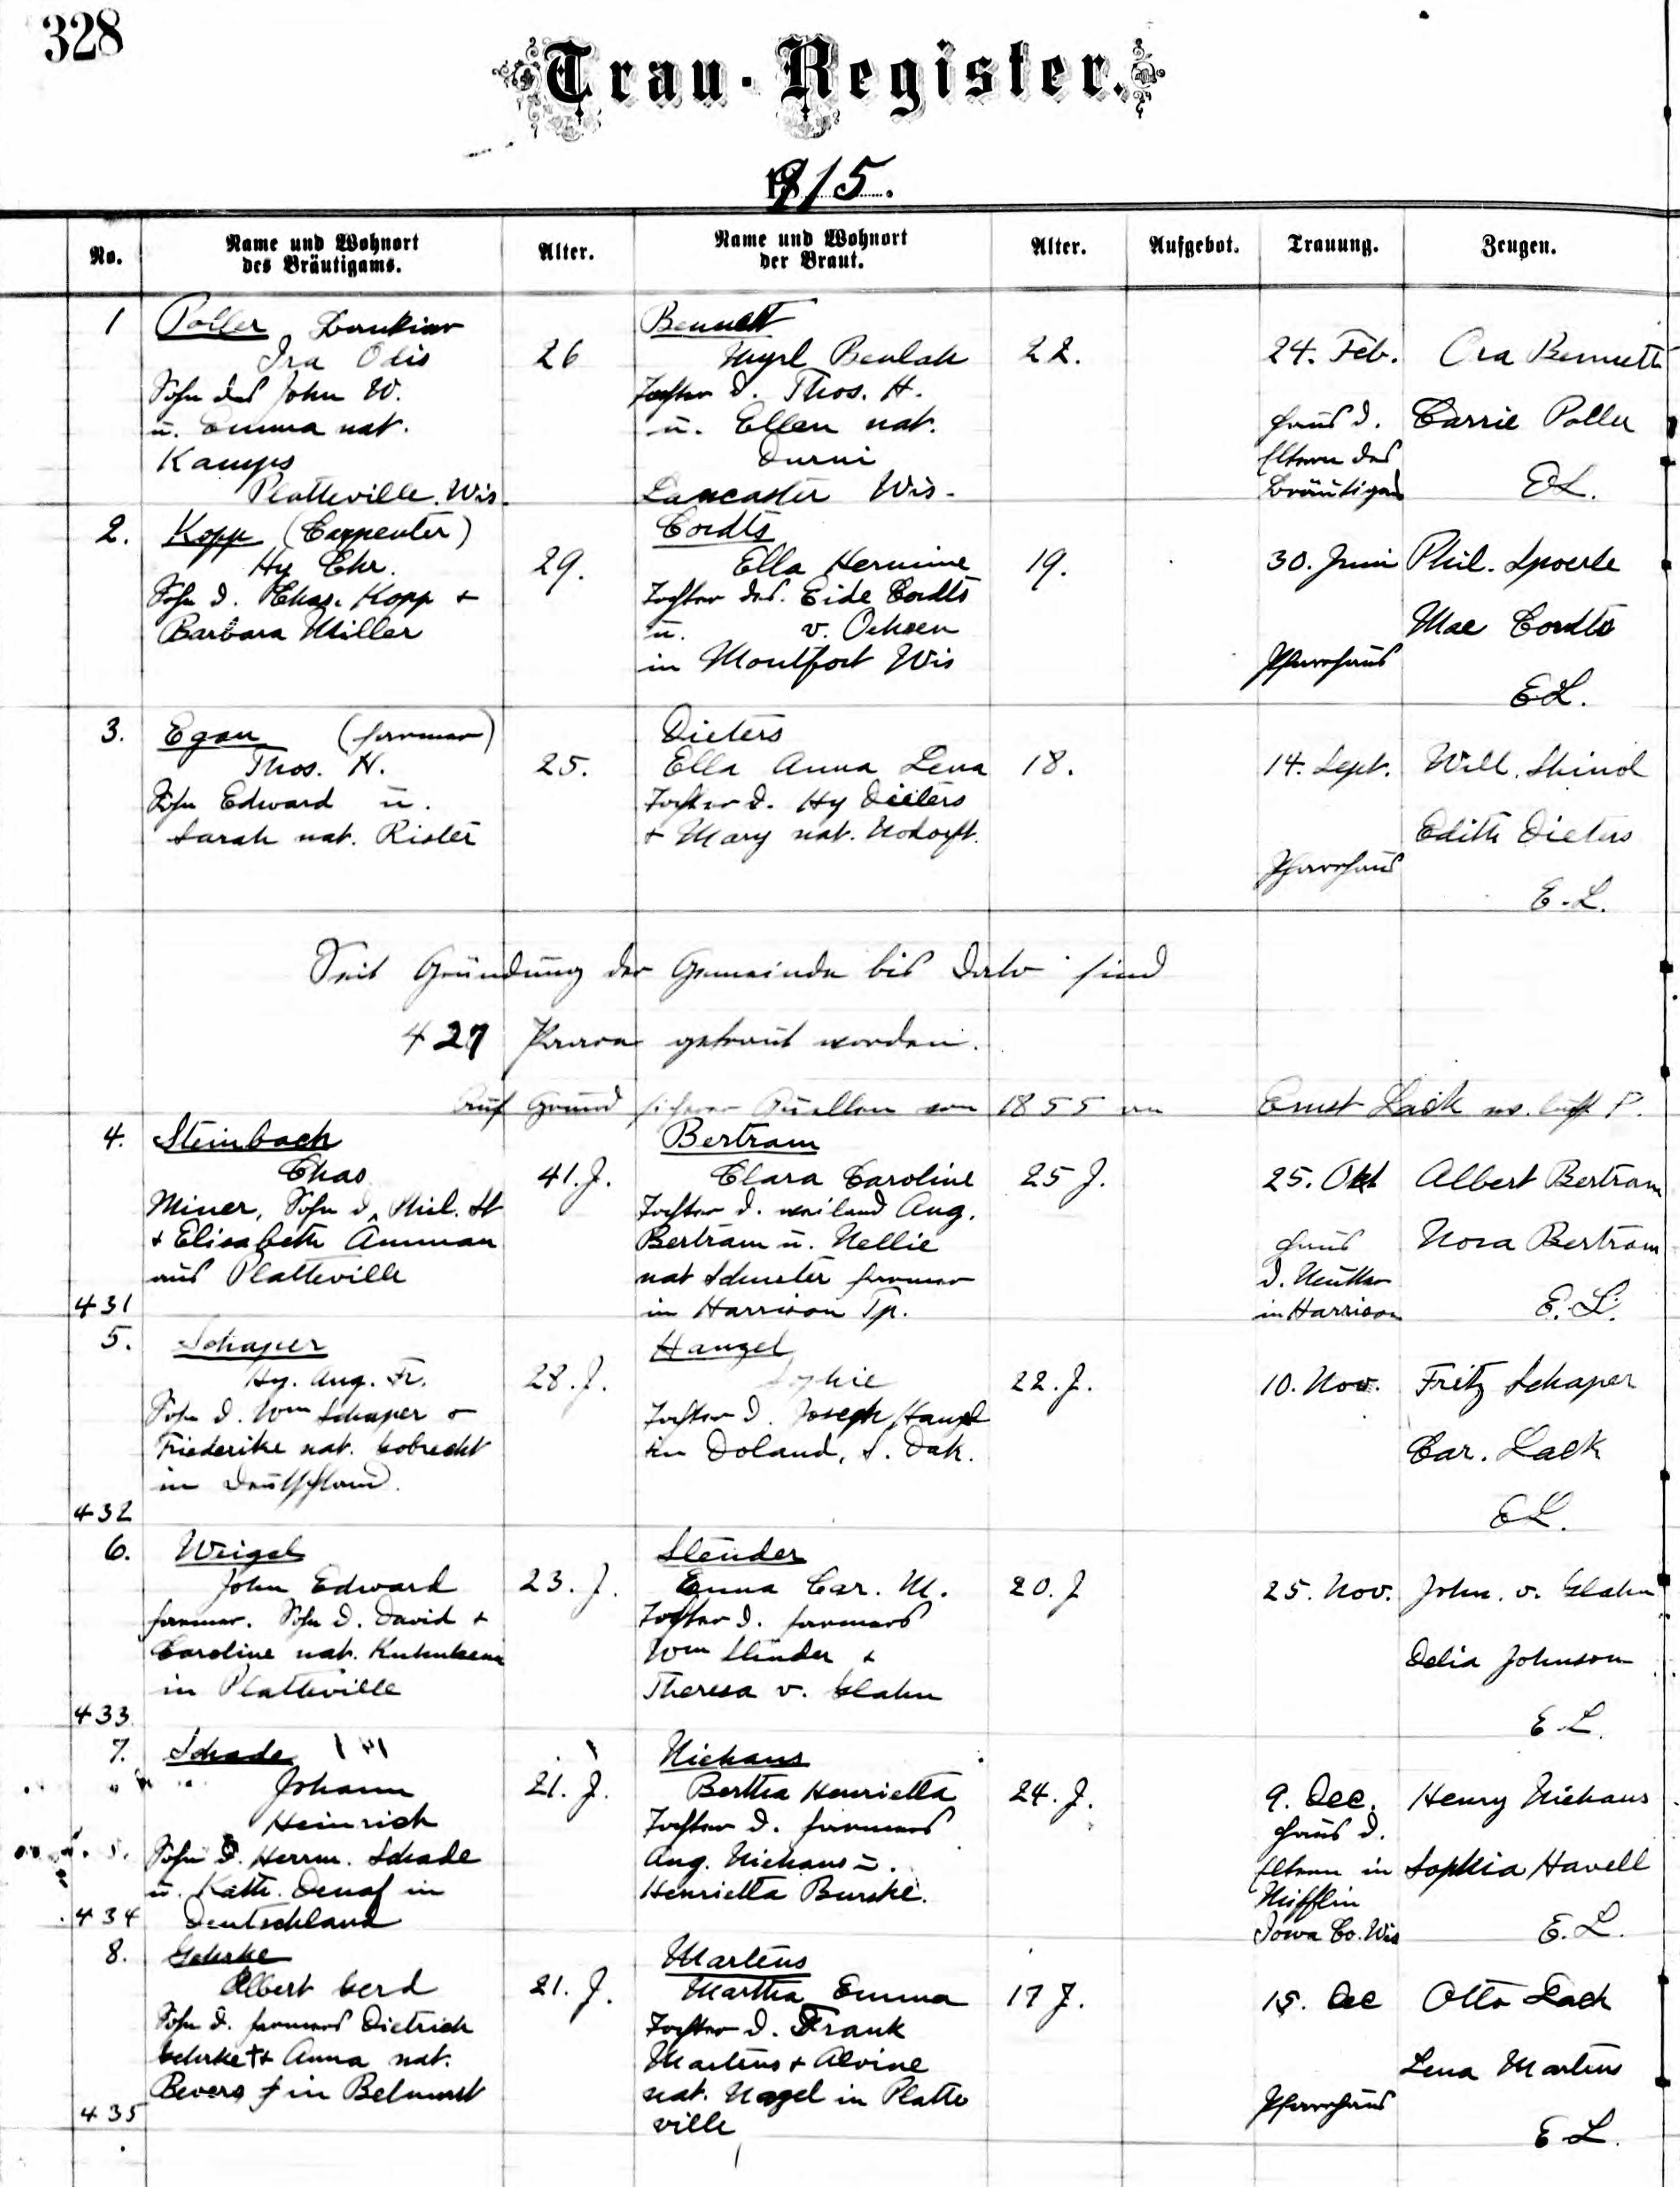 328
Trau-Register.
1915.
No.
Name und Wohnort
des Bräutigams.
Alter.
Name und Wohnort
der Braut.
Alter.
Aufgebot.
Trauung.
Zeugen.
1
Poller Bankier
Ira Otis
Sohn des John W.
u. Emma nat.
Kamps
Platteville. Wis.
26
Bennett
Myrl Beulah
Tochter d. Thos. H.
u. Ellen nat.
Lancaster Wis.
22.
24. Feb.
Haus d.
Eltern des
Bräutigams
Ora Bennett
Carrie Poller
EL.
2.
Kopp (Carpenter)
Hy Chr.
Sohn d. Chas. Kopp +
Barbara Miller
29.
Cordts
Ella Hermine
Tochter des. Eide Cordts
u. v. Oehsen
in Montfort Wis
19.
30. Juni
Pfarrhaus
Phil. Spoerle
Mae Cordts
E.L.
3.
Egan (farmer)
Thos. H.
Sohn Edward u.
Sarah nat. Rister
25.
Dieters
Ella Anna Lena
Tochter d. Hy Dieters
+ Mary nat.
18.
14. Sept.
Pfarrhaus
Will. Shinol
Edith Dieters
E.L.
Seit Gründung der Gemeinde bis Dato sind
427 Paare getraut worden.
Auf Grund sicherer Quellen von 1855 an Ernst Lack P.
4.
Steinbach
Chas
Miner, Sohn d. Phil. St
+ Elisabeth Amman
aus Platteville
431
41. J.
Bertram
Clara Caroline
Tochter d. weiland Aug.
Bertram u. Nellie
nat Schuster farmer
in Harrison Tp.
25 J.
25. Okt
Haus
d. Mutter
in Harrison
Albert Bertram
Nora Bertram
E.L.
5.
Schaper
Hy. Aug. Fr.
Sohn d. Wm Schaper +
Friederike nat. Cobrecht
in Deutschland.
432
28. J.
Hangel
Sophie
Tochter d. Joseph Hangel
in Doland, S. Dak.
22. J.
10. Nov.
Fritz Schaper
Car. Lack
EL.
6.
Weigel
John Edward
farmer. Sohn d. David +
Caroline nat.
in Platteville
433
23. J.
Stender
Emma Car. M.
Tochter d. farmers
Wm Stender +
Theresa v. Glahn
20. J
25. Nov.
John. v. Glahn
Delia Johnson
E L.
7.
Schade
Johann
Heinrich
Sohn d. Herm. Schade
u. Kath. in
Deutschland
434
21. J.
Niehaus
Bertha Henrietta
Tochter d. farmers
Aug. Niehaus u.
Henrietta
24. J.
9. Dec.
Haus d.
Eltern in
Mifflin
Iowa Co. Wis
Henry Niehaus
Sophia Havell
E.L.
8.
Gehrke
Albert Gerd
Sohn d. farmers Dietrich
Gehrke †+ Anna nat.
Bevers † in Belmont
435
21. J.
Martens
Martha Emma
Tochter d. Frank
Martens + Alvine
nat. Nagel in Platte
ville
17 J.
15. Dec
Pfarrhaus
Otto Lack
Lena Martens
E L.